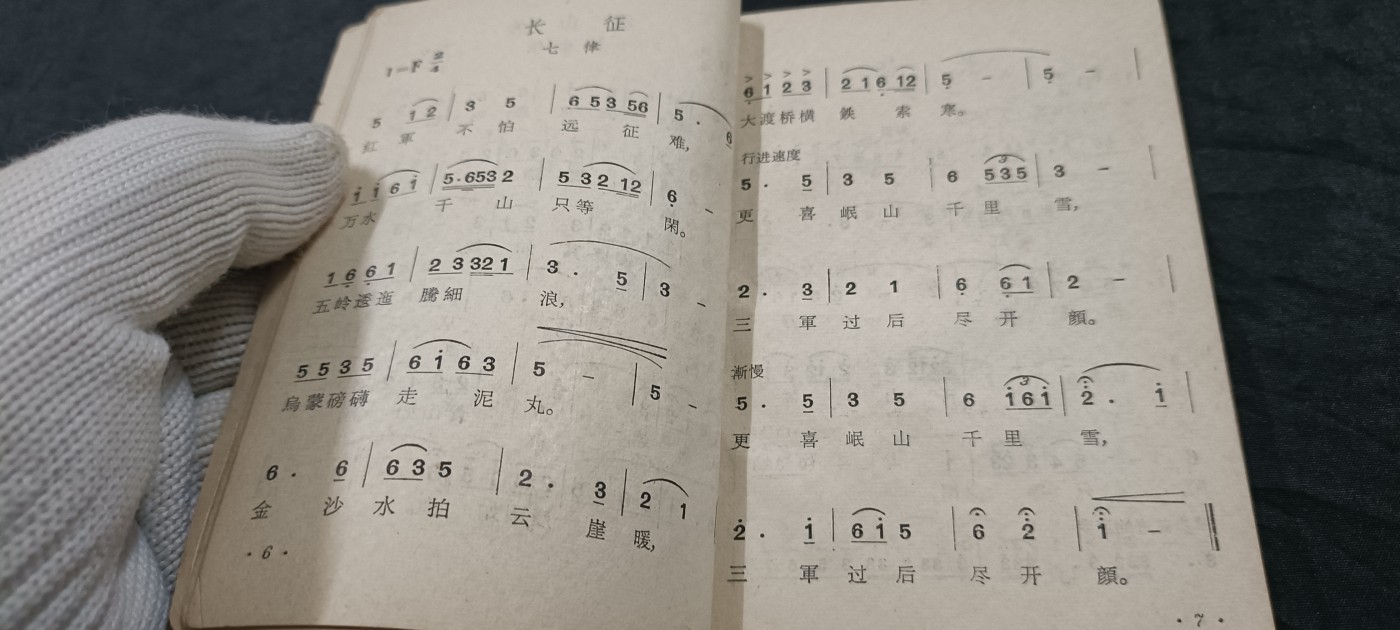 长 征
七 律
1=F 2/4
5 1 2 | 3 5 | 6 5 3 5 6 | 5 . 6
紅 軍 不 怕 远 征 难,
i i 6 i | 5 . 6 5 3 2 | 5 3 2 1 2 | 6 -
万 水 千 山 只 等 閑。
1 6 6 1 | 2 3 3 2 1 | 3 . 5 | 3 -
五 岭 逶 迤 騰 細 浪,
5 5 3 5 | 6 i 6 3 | 5 - | 5 -
烏 蒙 磅 礴 走 泥 丸。
6 . 6 | 6 3 5 | 2 . 3 | 2 1
金 沙 水 拍 云 崖 暖,
· 6 ·
6 1 2 3 | 2 1 6 1 2 | 5 - | 5 - |
大 渡 桥 横 鉄 索 寒。
行进速度
5 . 5 | 3 5 | 6 5 3 5 | 3 - |
更 喜 岷 山 千 里 雪,
2 . 3 | 2 1 | 6 6 1 | 2 - |
三 軍 过 后 尽 开 顏。
渐慢
5 . 5 | 3 5 | 6 i 6 i | 2 . i |
更 喜 岷 山 千 里 雪,
2 . i | 6 i 5 | 6 2 | i - ‖
三 軍 过 后 尽 开 顏。
· 7 ·